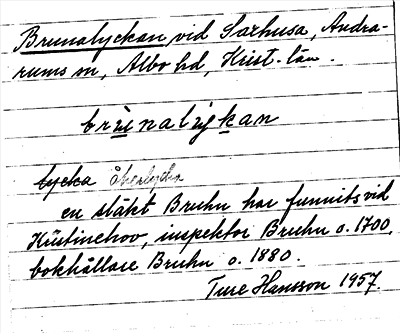 Brunalyckan vid Saxhusa, Andra-
rums sn, Albo hd, Krist. län.
brunalykan
lycka åkerlycka
en släkt Bruhn har funnits vid
Kristinehov, inspektor Bruhn o. 1700,
bokhållare Bruhn o. 1880.
Ture Hansson 1957.